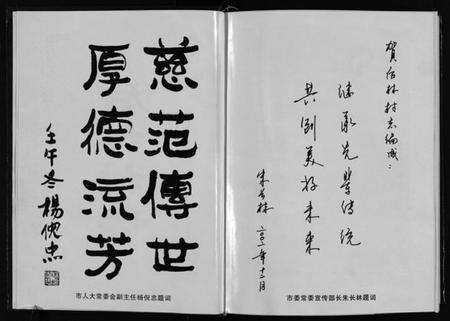 慈范傳世
厚德流芳
壬午冬 楊倪忠
市人大常委会副主任杨倪忠题词
賀伍林村志编成：
继承先辈传统
共创美好未来
朱长林
二〇〇二年十二月
市委常委宣传部长朱长林题词